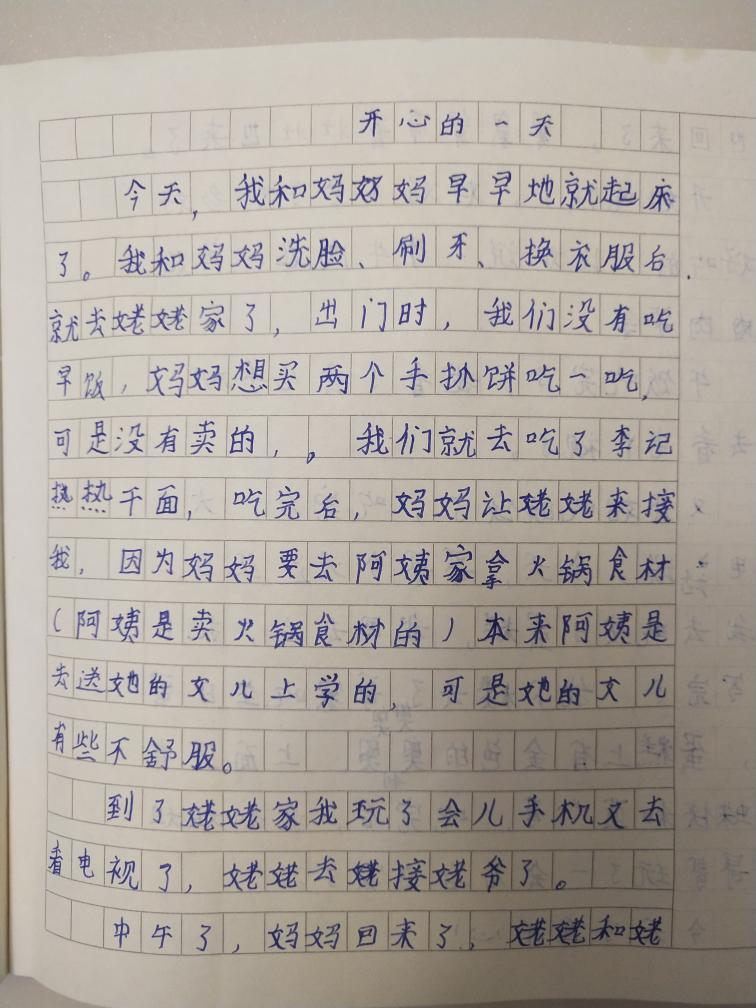 开心的一天
今天，我和妈妈妈早早地就起床
了。我和妈妈洗脸、刷牙、换衣服后.
就去姥姥家了，出门时，我们没有吃
早饭，妈妈想买两个手抓饼吃一吃，
可是没有卖的，。我们就去吃了李记
热热干面，吃完后，妈妈让姥姥来接
我，因为妈妈要去阿姨家拿火锅食材
（阿姨是卖火锅食材的）本来阿姨是
去送她的女儿上学的，可是她的女儿
有些不舒服。
到了姥姥家我玩了会儿手机又去
看电视了，姥姥去姥接姥爷了。
中午了，妈妈回来了，姥姥和姥